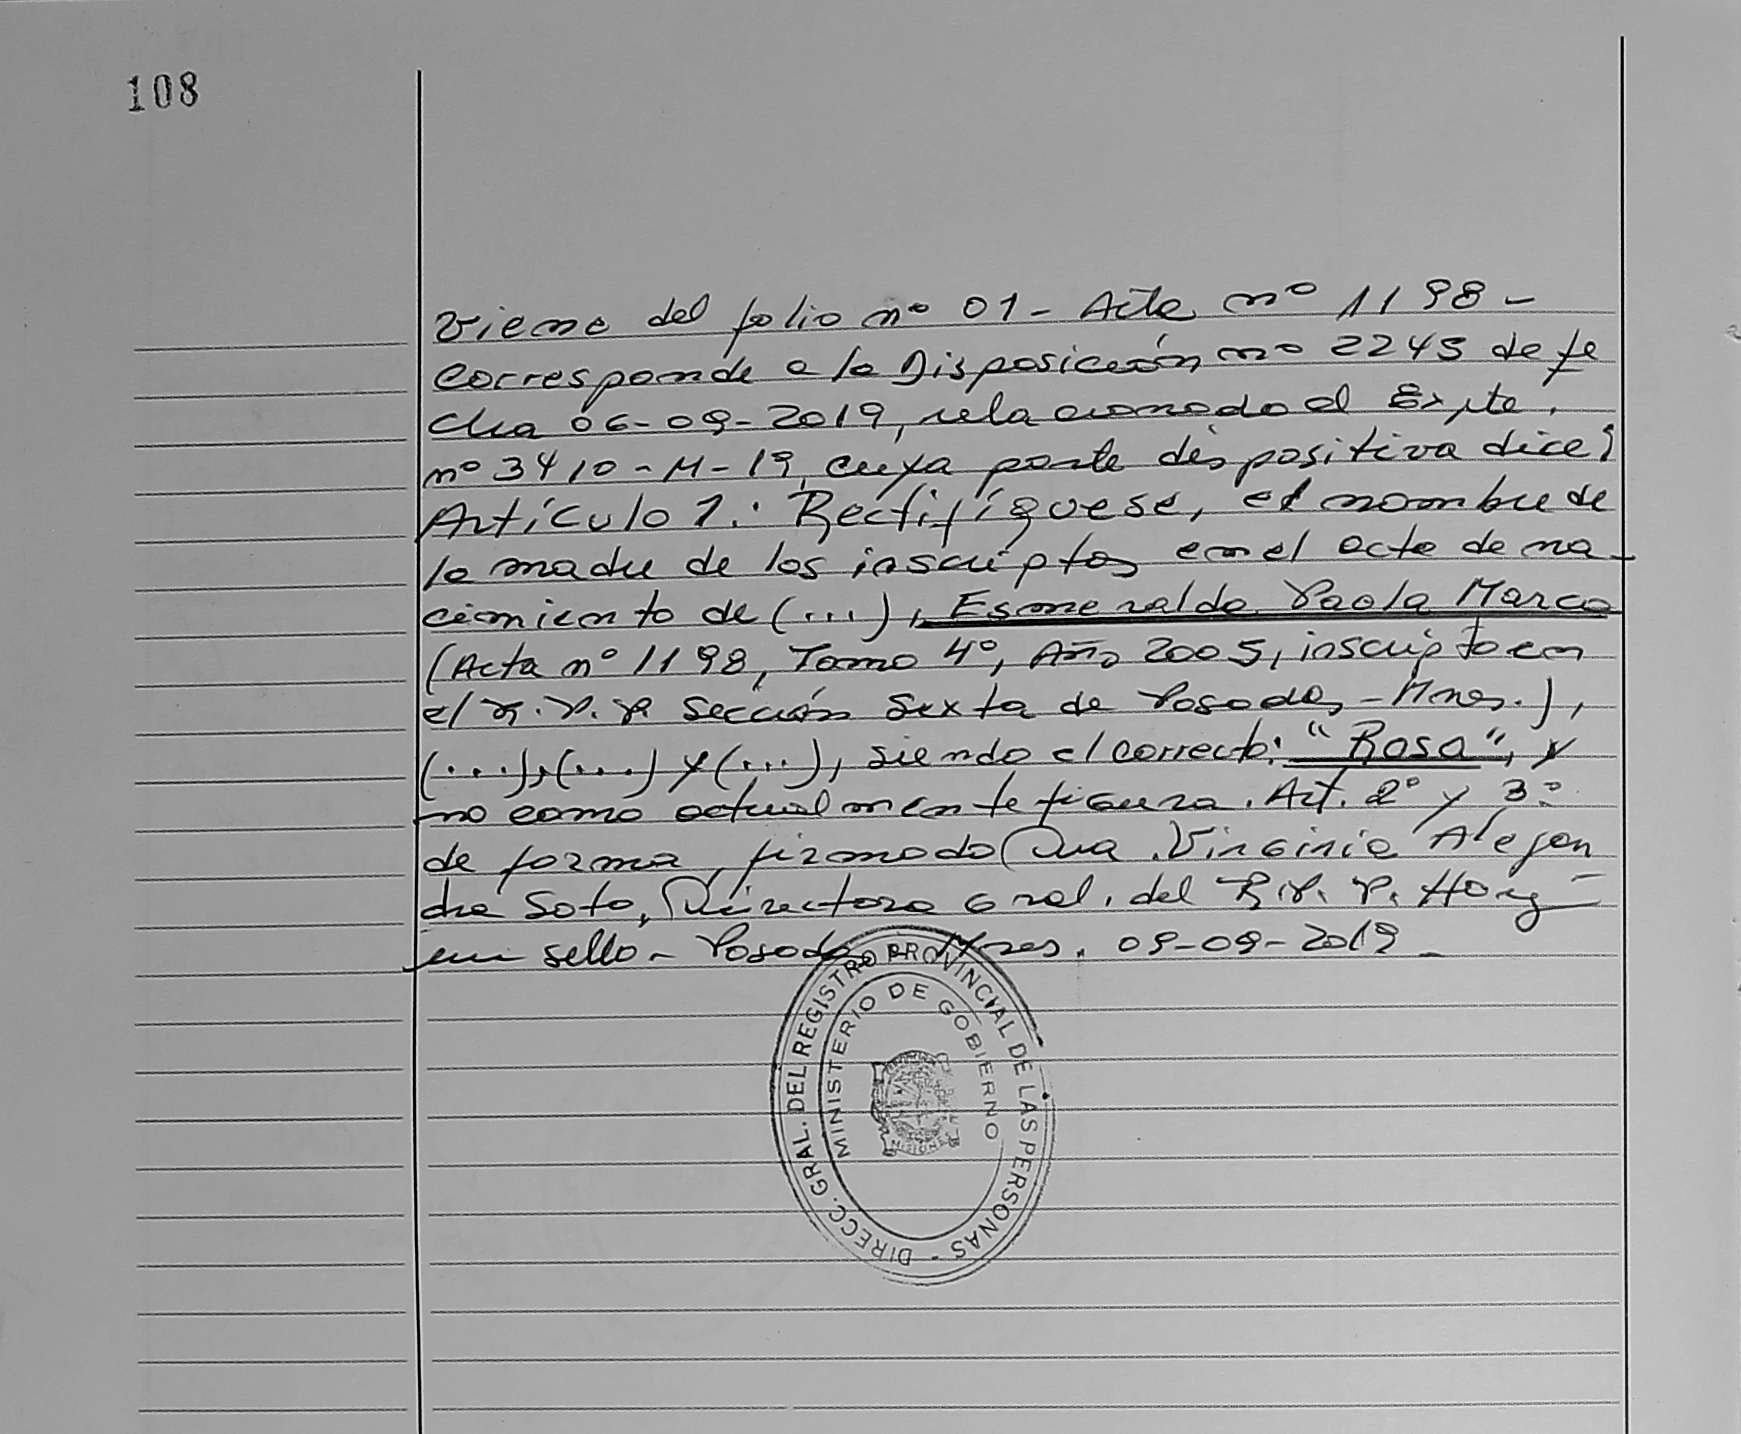 108
Viene del folio nº 01 - Acta nº 1198 -
Corresponde a la Disposición nº 2245 de fe
cha 06-09-2019, relacionado al Expte.
nº 3410-M-19, cuya parte dispositiva dice:
Artículo 1.: Rectifíquese, el nombre de
la madre de los inscriptos en el acta de na-
cimiento de (...), Esmeralda Paola Marca
(Acta nº 1198, Tomo 4º, Año 2005, inscripto en
el R.P.P. Sección Sexta de Posadas - Mnes.),
(...), (...) y (...), siendo el correcto: "Rosa", y
no como actualmente figura. Art. 2º y 3º
de forma, firmado Dra. Virginia Alejan
dra Soto, Directora Gral. del R.P.P. Hay
un sello - Posadas, Mnes. 09-09-2019 -
DIRECC. GRAL. DEL REGISTRO PROVINCIAL DE LAS PERSONAS -
MINISTERIO DE GOBIERNO